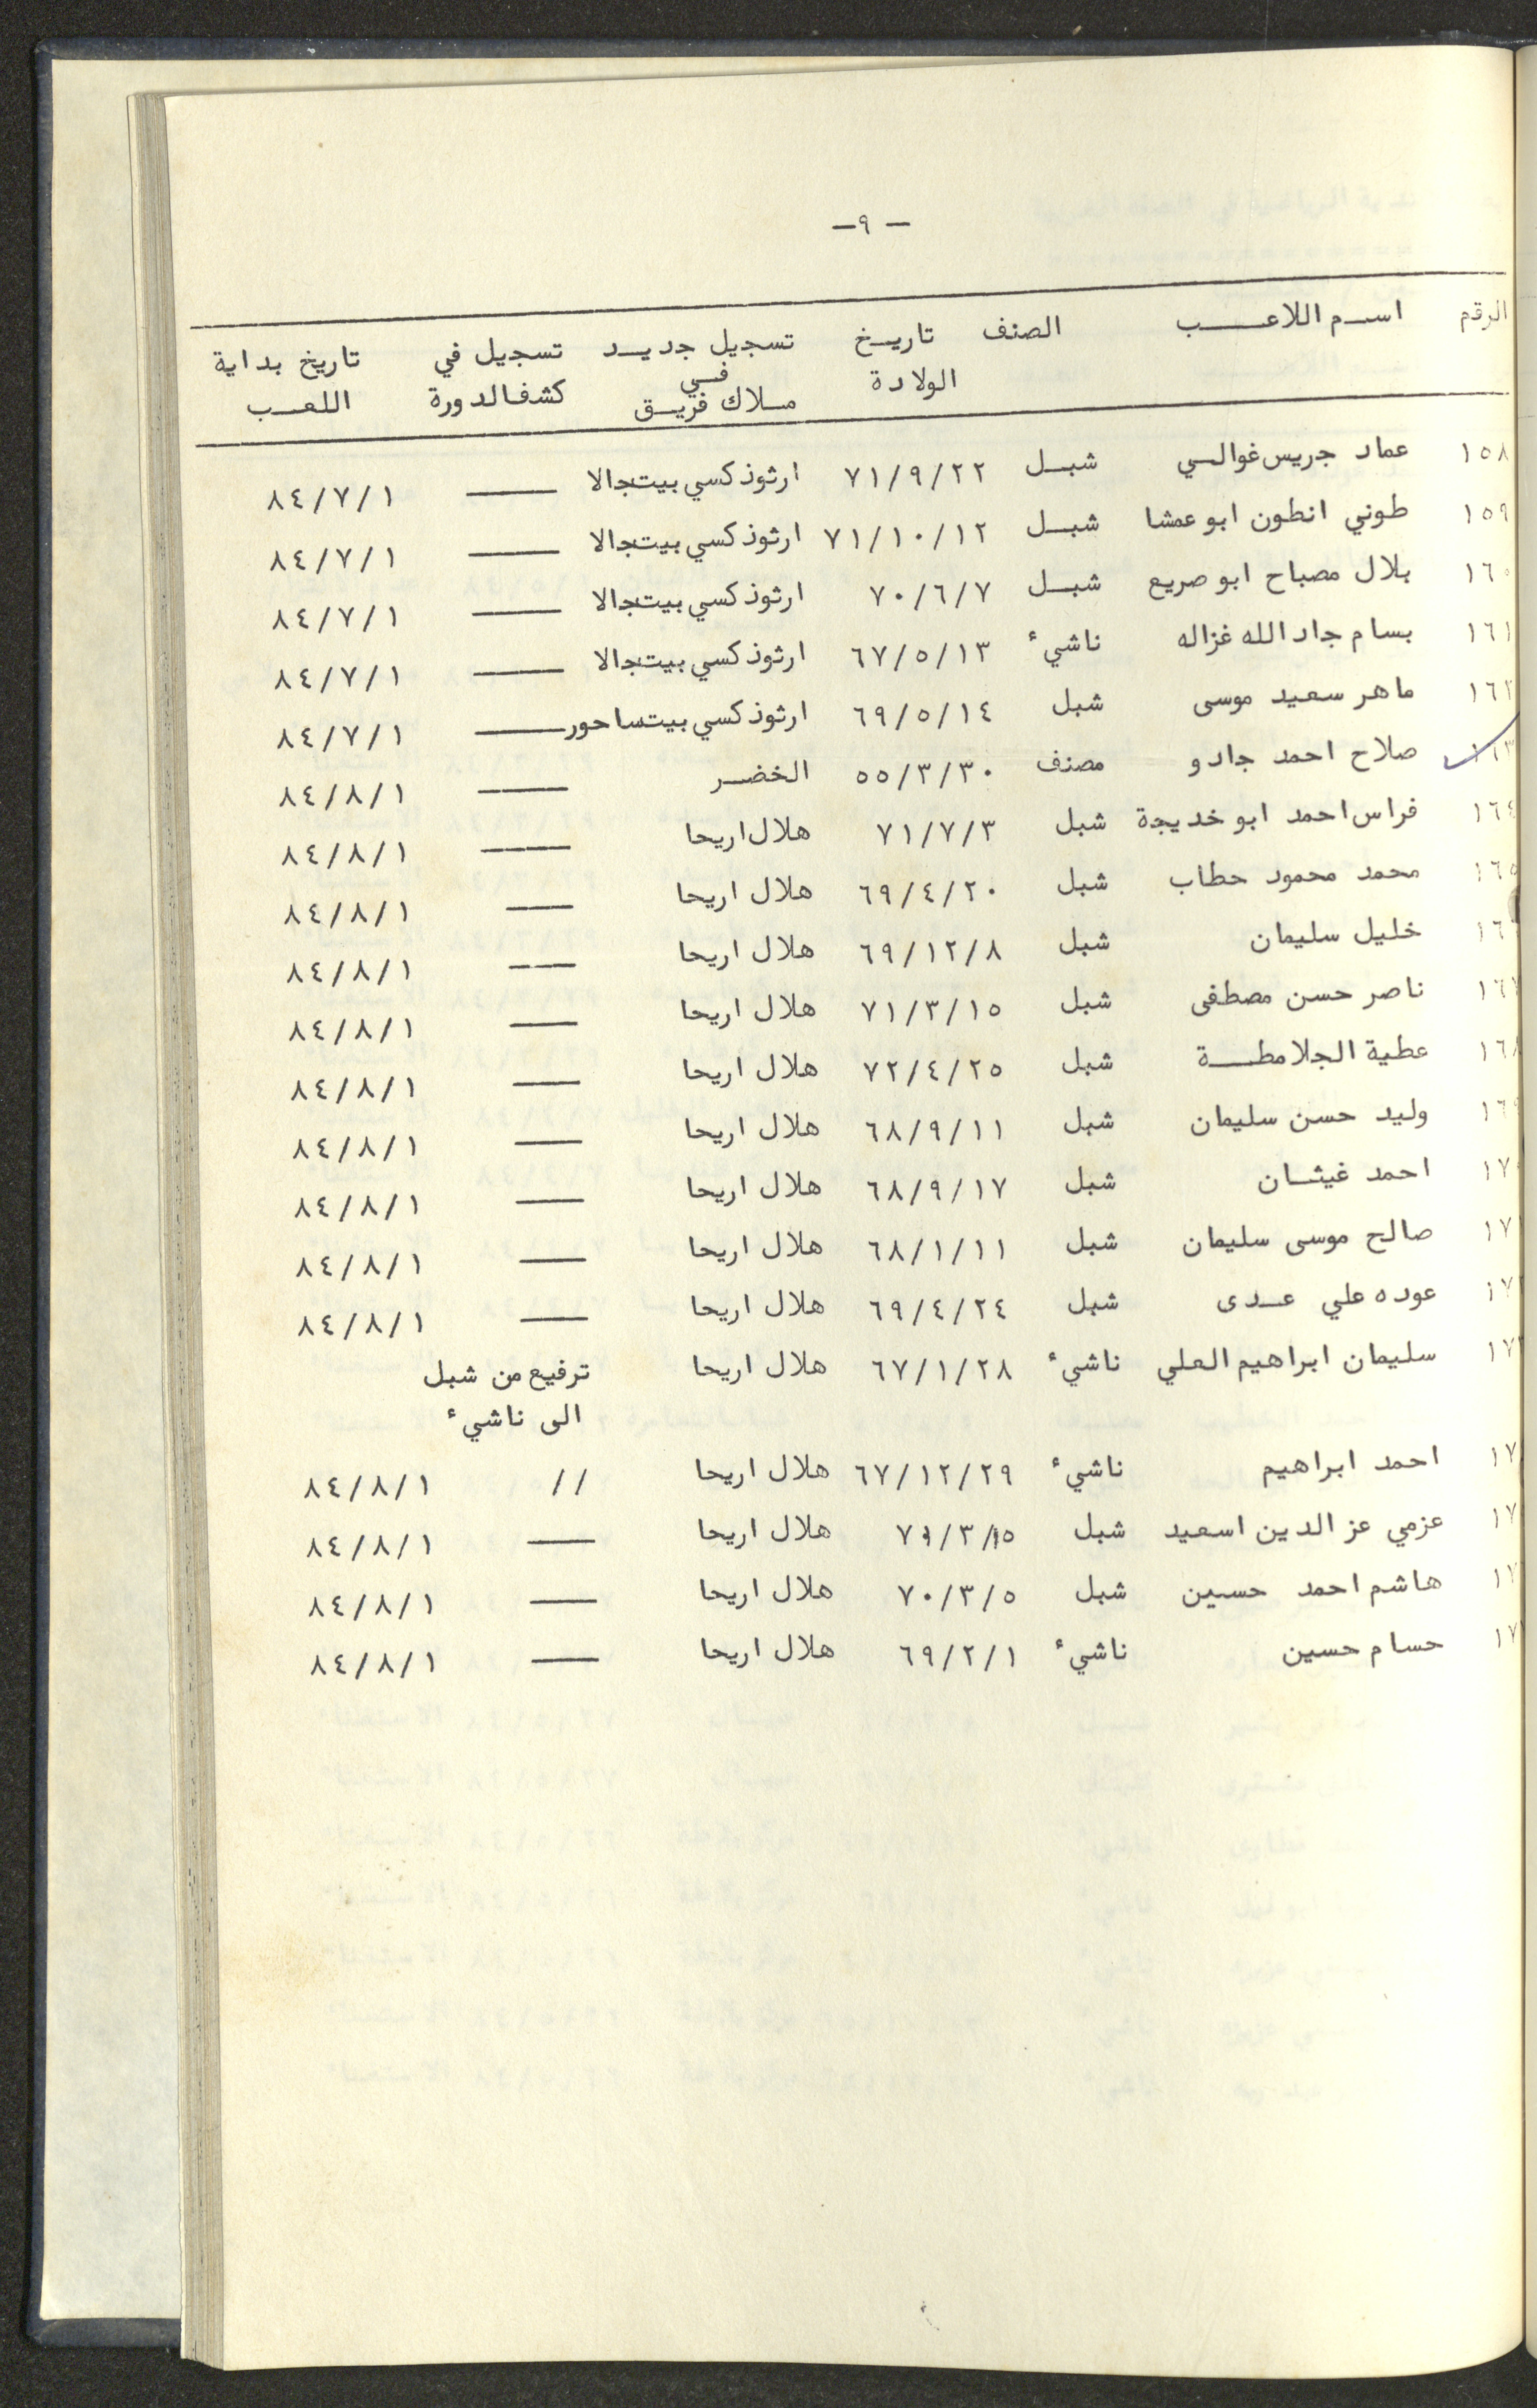 — ٩—
الرقم اسم اللاعب الصنف تاريخ الولادة تسجيل جديد في ملاك فريق تسجيل في كشف الدورة تاريخ بداية اللعب
١٥٨ عماد جريس غوالي شبل ٧١/٩/٢٢ ارثوذكسي بيتجالا —— ٨٤/٧/١
١٥٩ طوني انطون ابو عمشا شبل ٧١/١٠/١٢ ارثوذكسي بيتجالا —— ٨٤/٧/١
١٦٠ بلال مصباح ابو صريع شبل ٧٠/٦/٧ ارثوذكسي بيتجالا —— ٨٤/٧/١
١٦١ بسام جاد الله غزاله ناشيء ٦٧/٥/١٣ ارثوذكسي بيتجالا —— ٨٤/٧/١
١٦٢ ماهر سعيد موسى شبل ٦٩/٥/١٤ ارثوذكسي بيتساحور —— ٨٤/٧/١
١٦٣ صلاح احمد جادو مصنف ٥٥/٣/٣٠ الخضر —— ٨٤/٨/١
١٦٤ فراس احمد ابو خديجة شبل ٧١/٧/٣ هلال اريحا —— ٨٤/٨/١
١٦٥ محمد محمود حطاب شبل ٦٩/٤/٢٠ هلال اريحا —— ٨٤/٨/١
١٦ خليل سليمان شبل ٦٩/١٢/٨ هلال اريحا —— ٨٤/٨/١
١٦ ناصر حسن مصطفى شبل ٧١/٣/١٥ هلال اريحا —— ٨٤/٨/١
١٦٨ عطية الجلامطة شبل ٧٢/٤/٢٥ هلال اريحا —— ٨٤/٨/١
١٦ وليد حسن سليمان شبل ٦٨/٩/١١ هلال اريحا —— ٨٤/٨/١
١٧ احمد غيثان شبل ٦٨/٩/١٧ هلال اريحا —— ٨٤/٨/١
١٧ صالح موسى سليمان شبل ٦٨/١/١١ هلال اريحا —— ٨٤/٨/١
١٧ عوده علي عدى شبل ٦٩/٤/٢٤ هلال اريحا —— ٨٤/٨/١
١٧ سليمان ابراهيم العلي ناشيء ٦٧/١/٢٨ هلال اريحا ترفيع من شبل
الى ناشيء
١٧ احمد ابراهيم ناشيء ٦٧/١٢/٢٩ هلال اريحا // ٨٤/٨/١
١٧ عزمي عز الدين اسعيد شبل هلال اريحا —— ٨٤/٨/١
١٧ هاشم احمد حسين شبل ٧٠/٣/٥ هلال اريحا —— ٨٤/٨/١
١٧ حسام حسين ناشيء ٦٩/٢/١ هلال اريحا —— ٨٤/٨/١